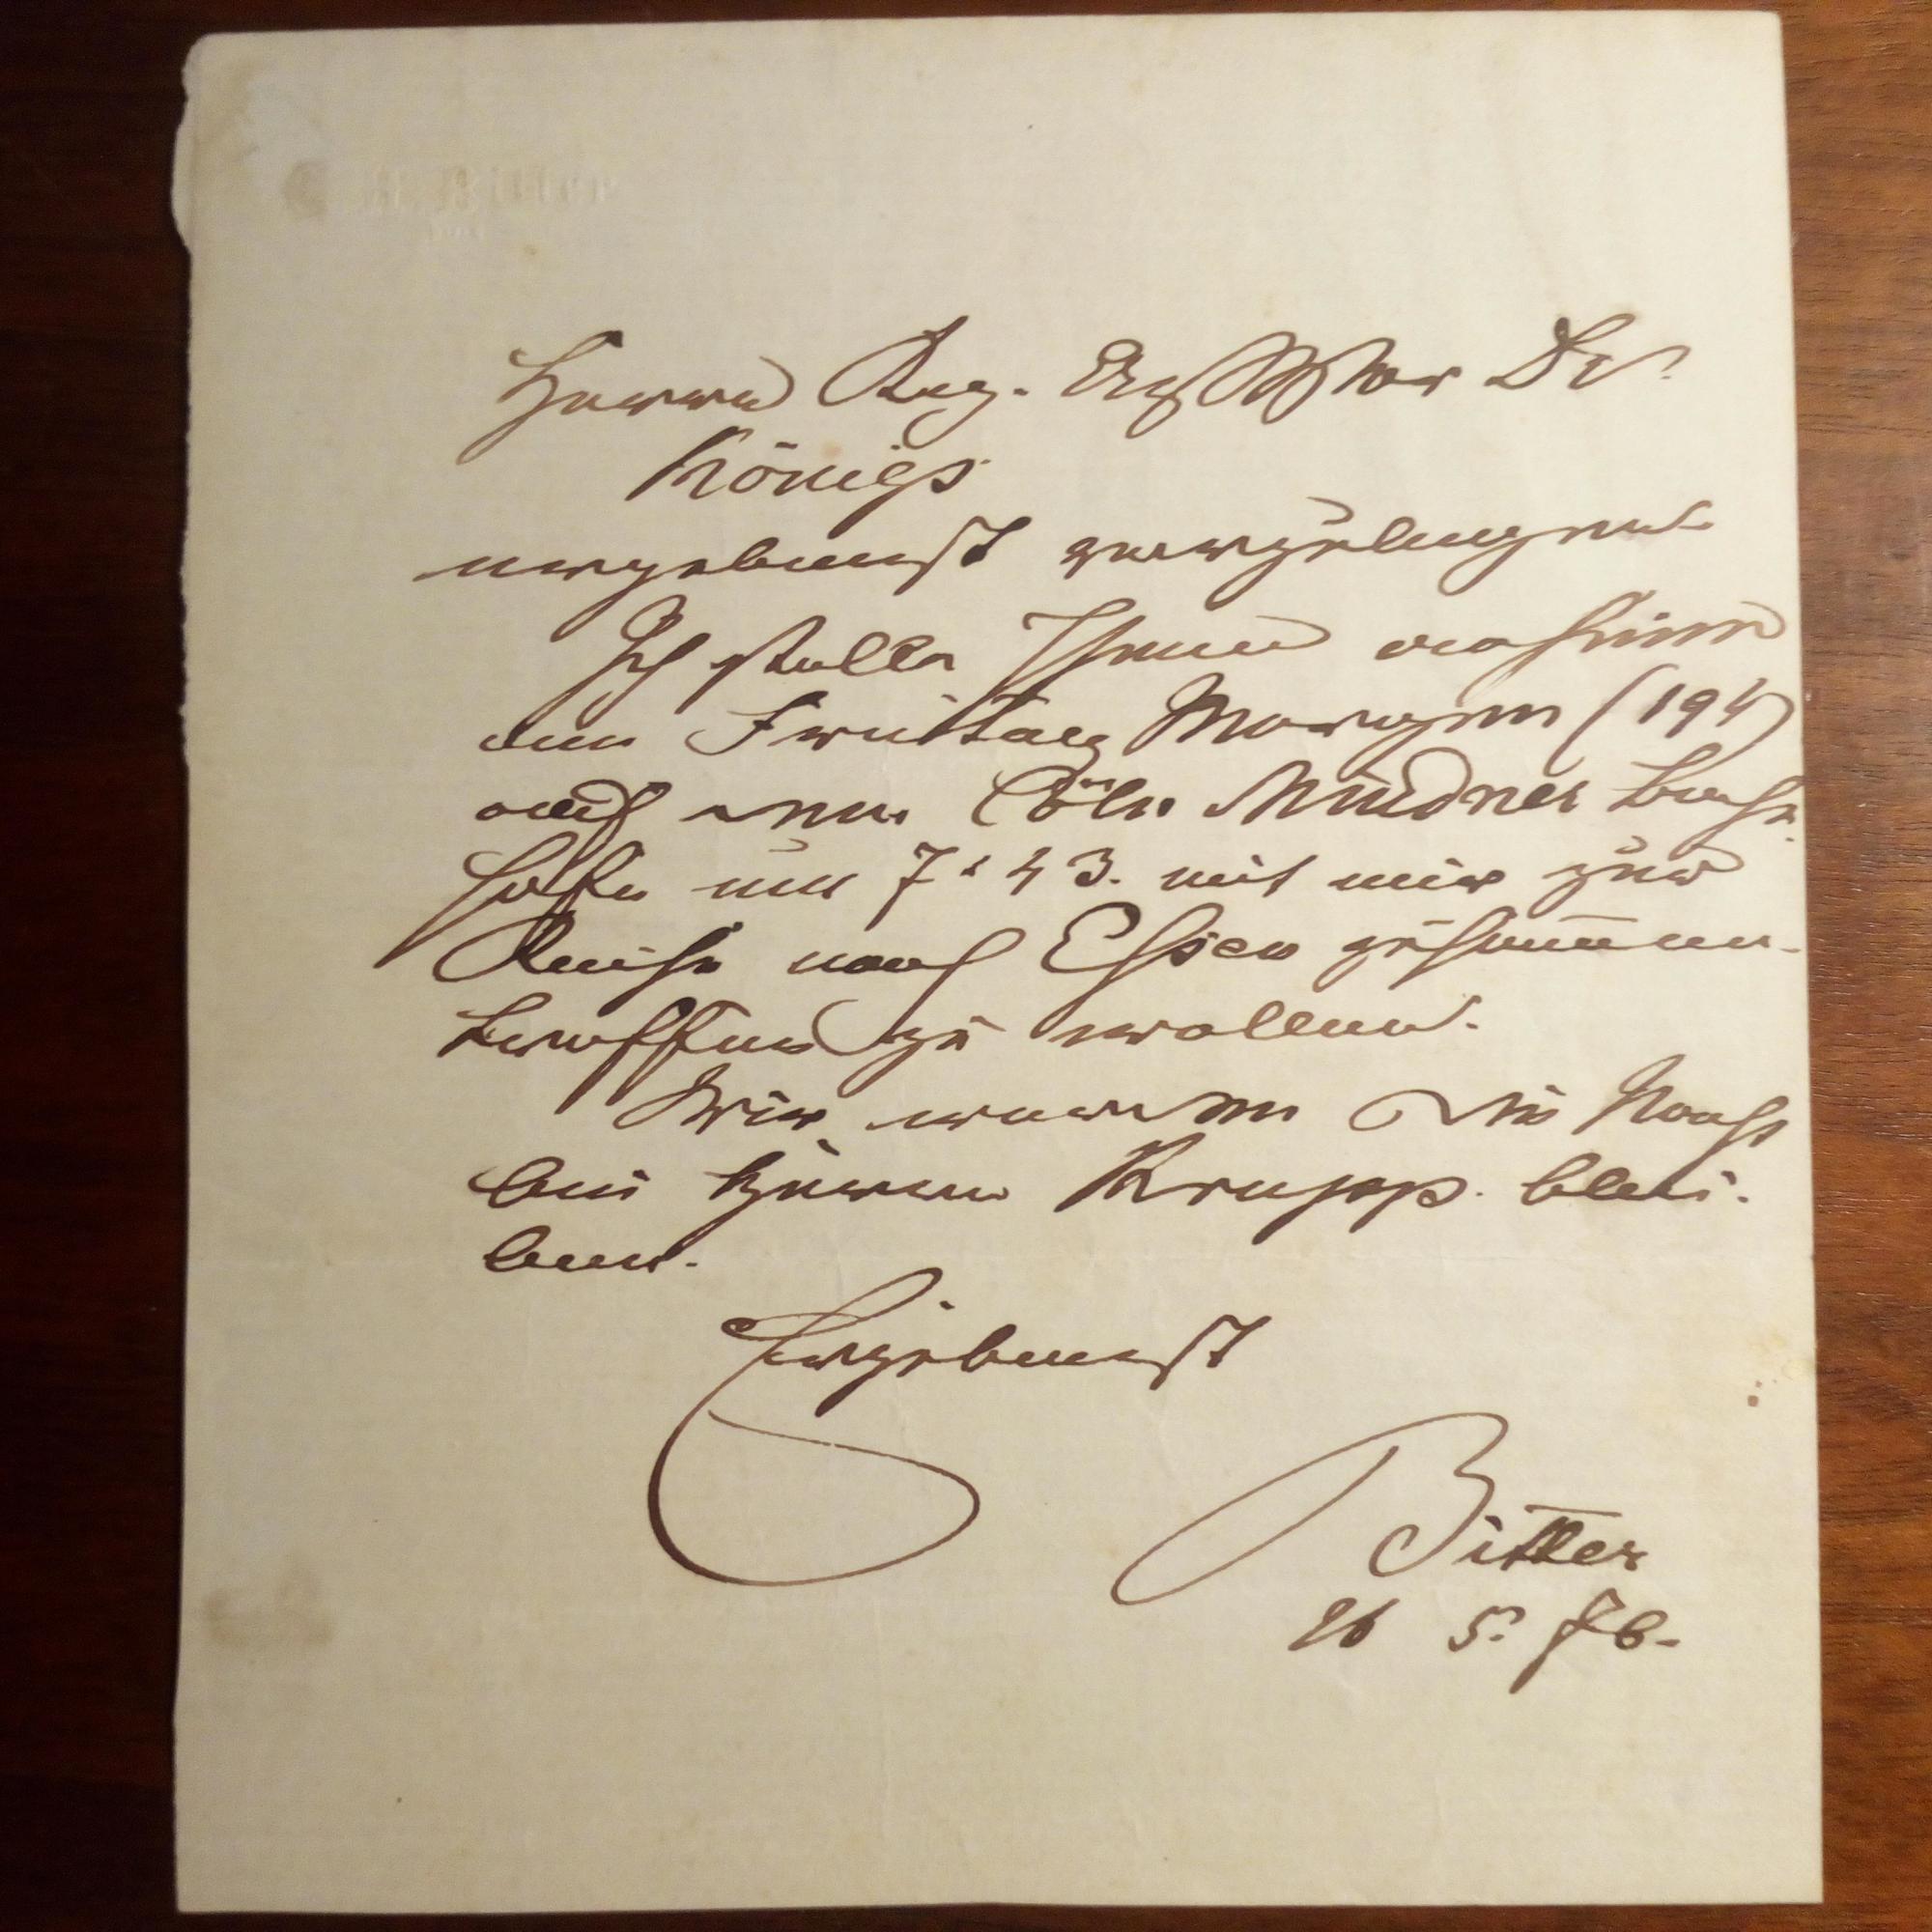 C. H. Bitter
Herrn Reg. Assessor Dr.
Königs
ergebenst
Ich stelle Ihnen anheim
am Freitag Morgen (19t)
auf dem Cöln Mindner Bahn
hofe um 7.43. mit mir zur
Reise nach Essen zusam̅en-
treffen zu wollen.
Wir werden die Nacht
bei Herrn Krupp blei-
ben.
Ergebenst
Bitter
16 5. 76.